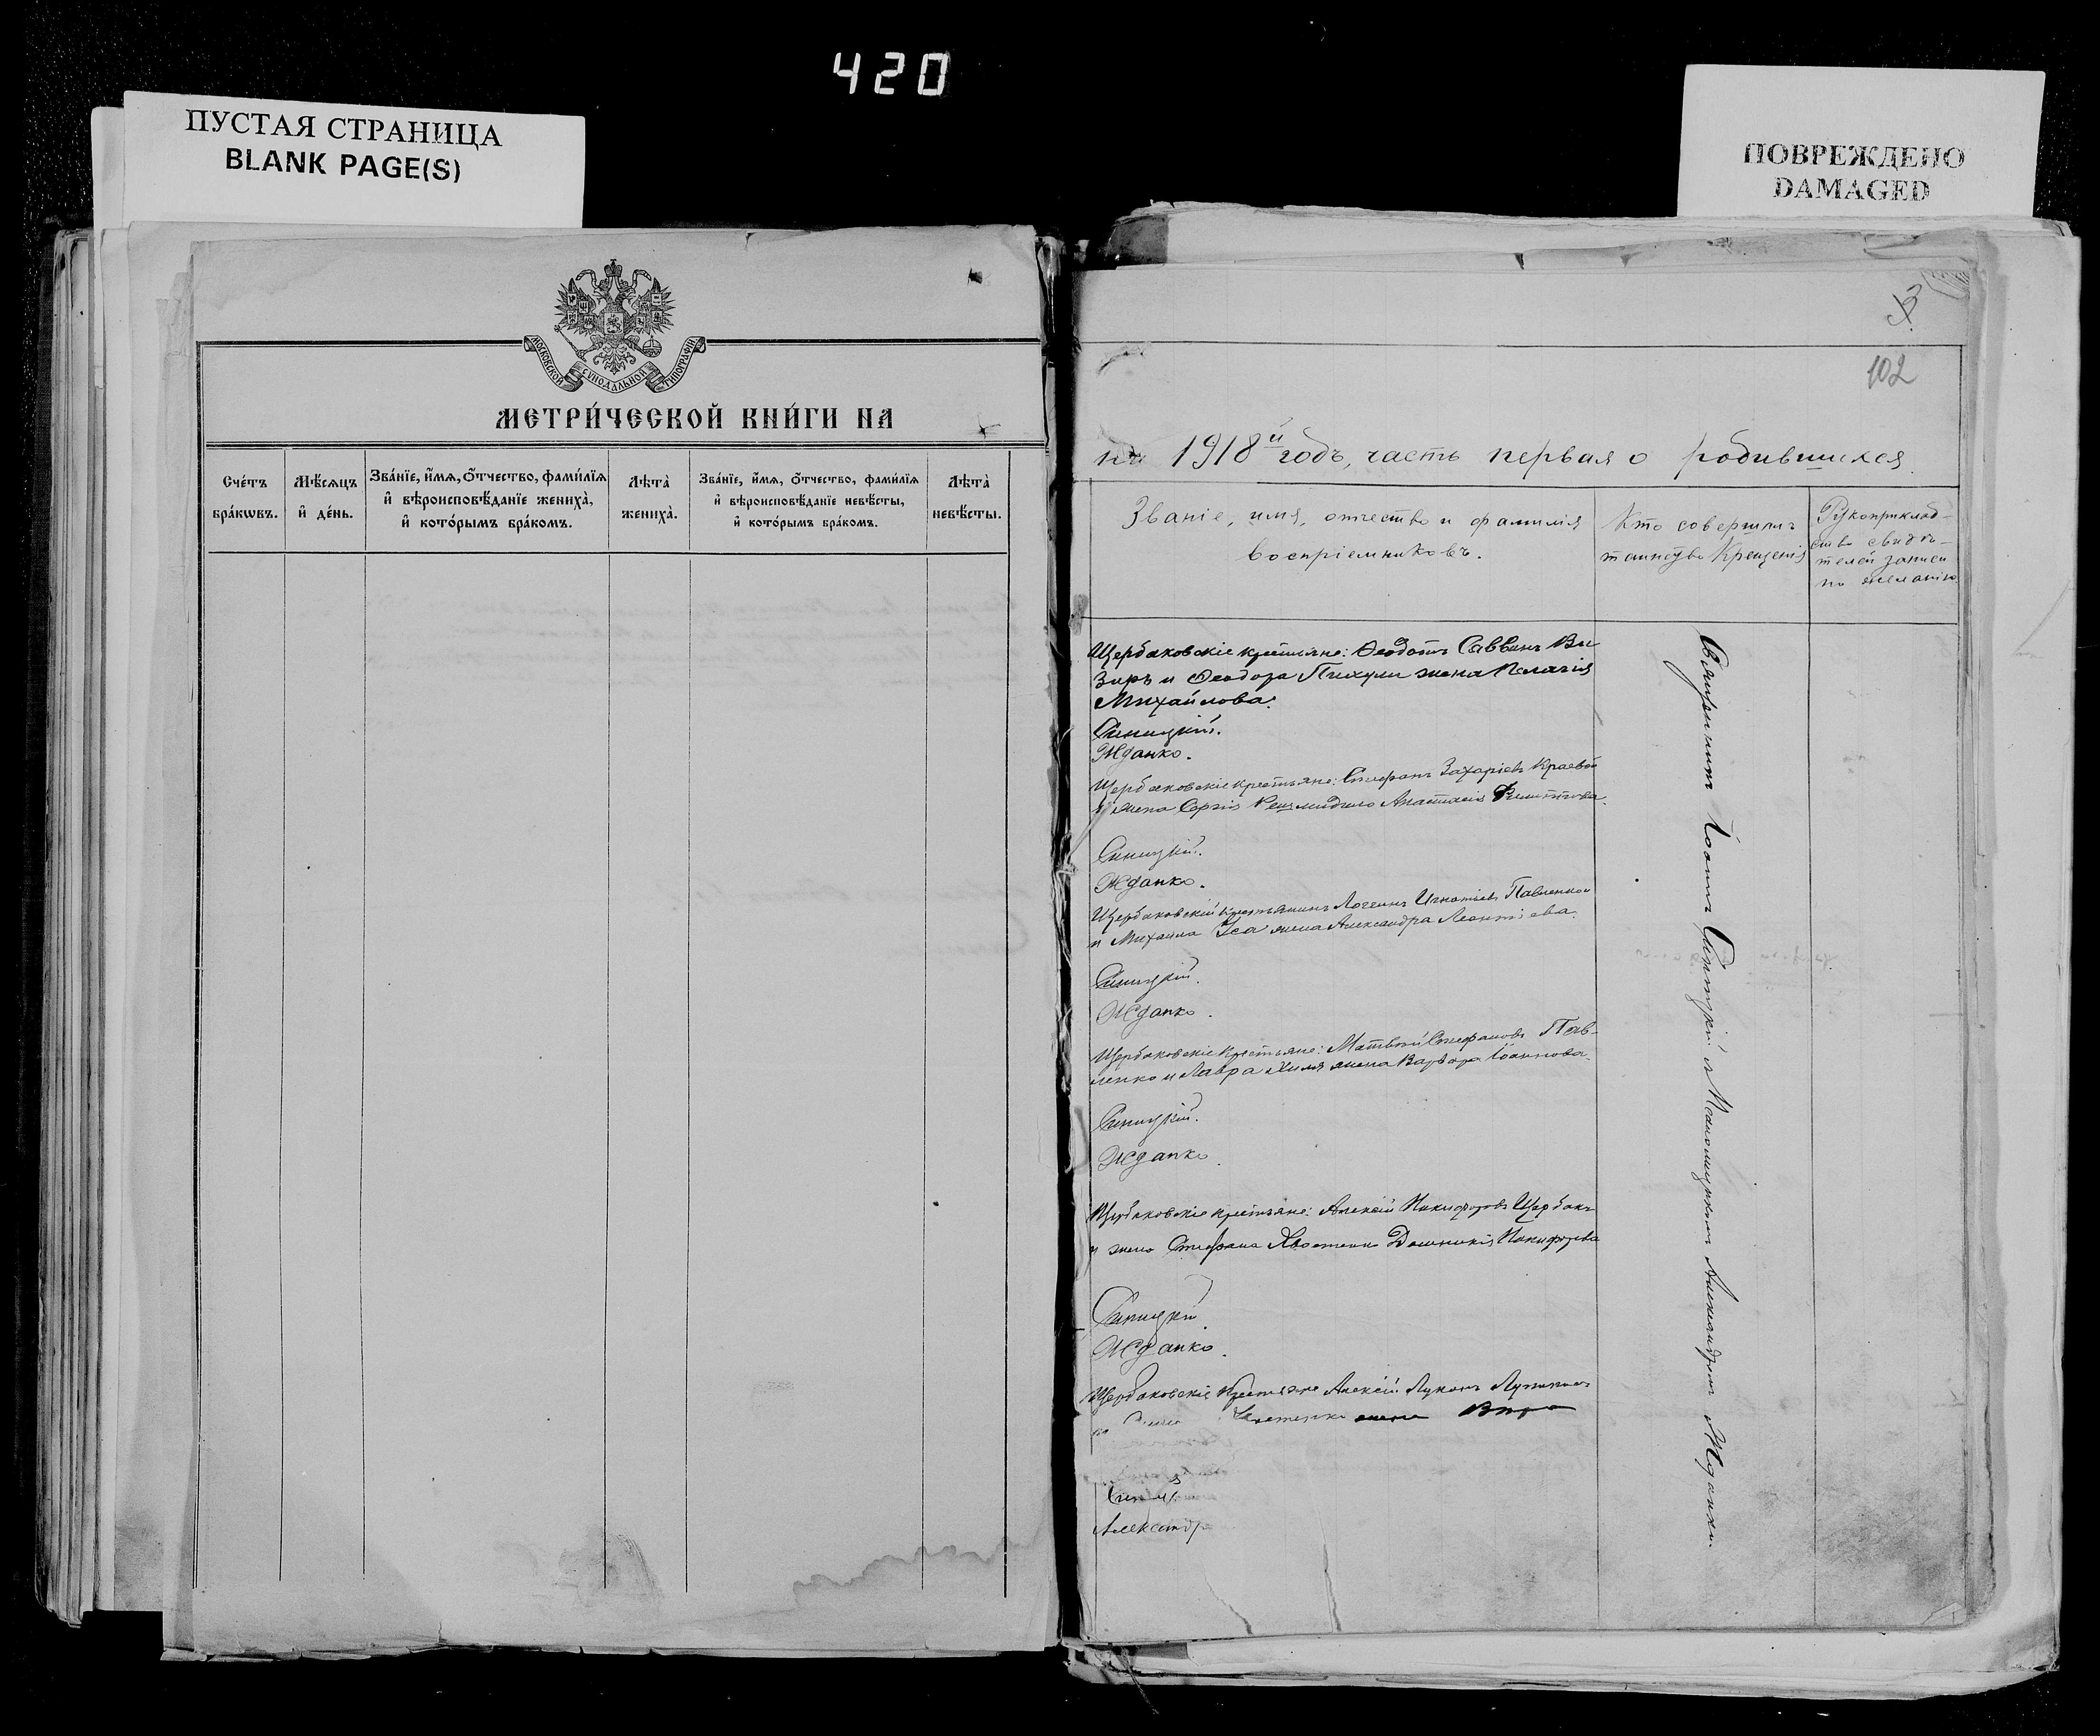 420
ПУСТАЯ СТРАНИЦА
BLANK PAGE(S)
ПОВРЕЖДЕНО
DAMAGED
МОСКОВСКОЙ СѴНОДАЛЬНОЙ ТИПОГРАФІИ
МЕТРИ́ЧЕСКОЙ КНИ́ГИ НА
Сче́тъ бра́кѡвъ.
Мѣ́сѧцъ и҆ де́нь.
Зва́нїе, и҆́мѧ, ѻ҆́тчество, фами́лїѧ
и҆ вѣроисповѣ́данїе жениха̀,
и҆ кото́рымъ бра́комъ.
Лѣта̀ жениха̀.
Зва́нїе, и҆́мѧ, ѻ҆́тчество, фами́лїѧ
и҆ вѣроисповѣ́данїе невѣ́сты,
и҆ кото́рымъ бра́комъ.
Лѣта̀ невѣ́сты.
3
102
на 1918й годъ, часть первая о родившихся
Званіе, имя, отчество и фамилія
воспріемниковъ.
Кто совершилъ
таинство Крещенія
Рукоприклад-
ство свидѣ-
телей записи
по желанію
Щербаковскіе крестьяне: Ѳеодотъ Саввинъ Ви
зиръ и Ѳеодора жена Пелагія
Михайлова.
Синицкій.
Жданко.
Щербаковскіе крестьяне: Стефанъ Захаріевъ Краевой
и жена Сергія Анастасія Филиппова.
Синицкій.
Жданко.
Щербаковскій крестьянинъ Логвинъ Игнатіевъ Павленко
и Михаила Уса жена Александра Леонтіева.
Синицкій.
Жданко.
Щербаковскіе крестьяне: Матвѣй Стефановъ Пав-
ленко и Лавра Хиля жена Варвара Іоаннова.
Синицкій.
Жданко.
Щербаковскіе крестьяне: Алексѣй Никифоровъ Щербакъ
и жена Стефана Домникія Никифорова
Синицкій
Жданко.
Щербаковскіе крестьяне Алексѣй Лукинъ
жена
Александр
Священникъ Іоаннъ Синицкій съ Псаломщикомъ Александромъ Жданко.